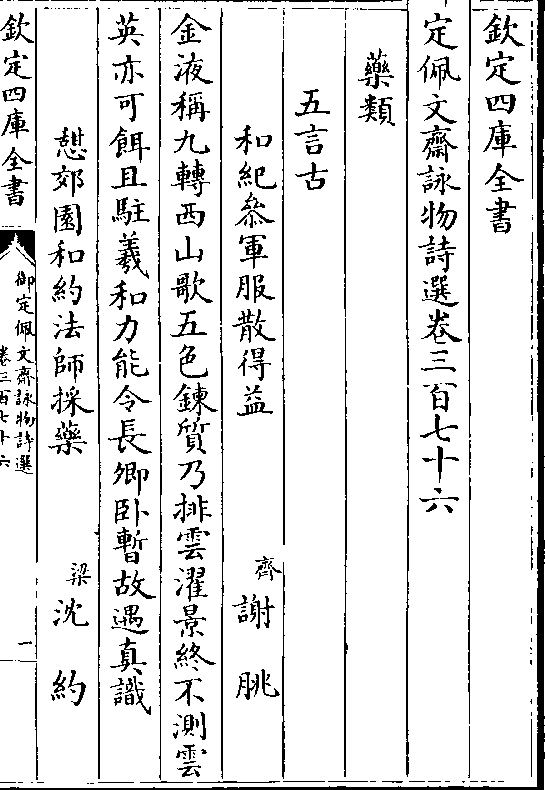 欽定四庫全書
定佩文齋詠物詩選卷三百七十六
藥類
五言古
和紀叅軍服散得益　齊　謝朓
金液稱九轉西山歌五色鍊質乃排雲濯景終不測雲
英亦可餌且駐羲和力能令長卿卧暫故遇真識
憩郊園和約法師採藥　梁　沈約
欽定四庫全書
御定佩文齋詠物詩選
卷三百七十六
一